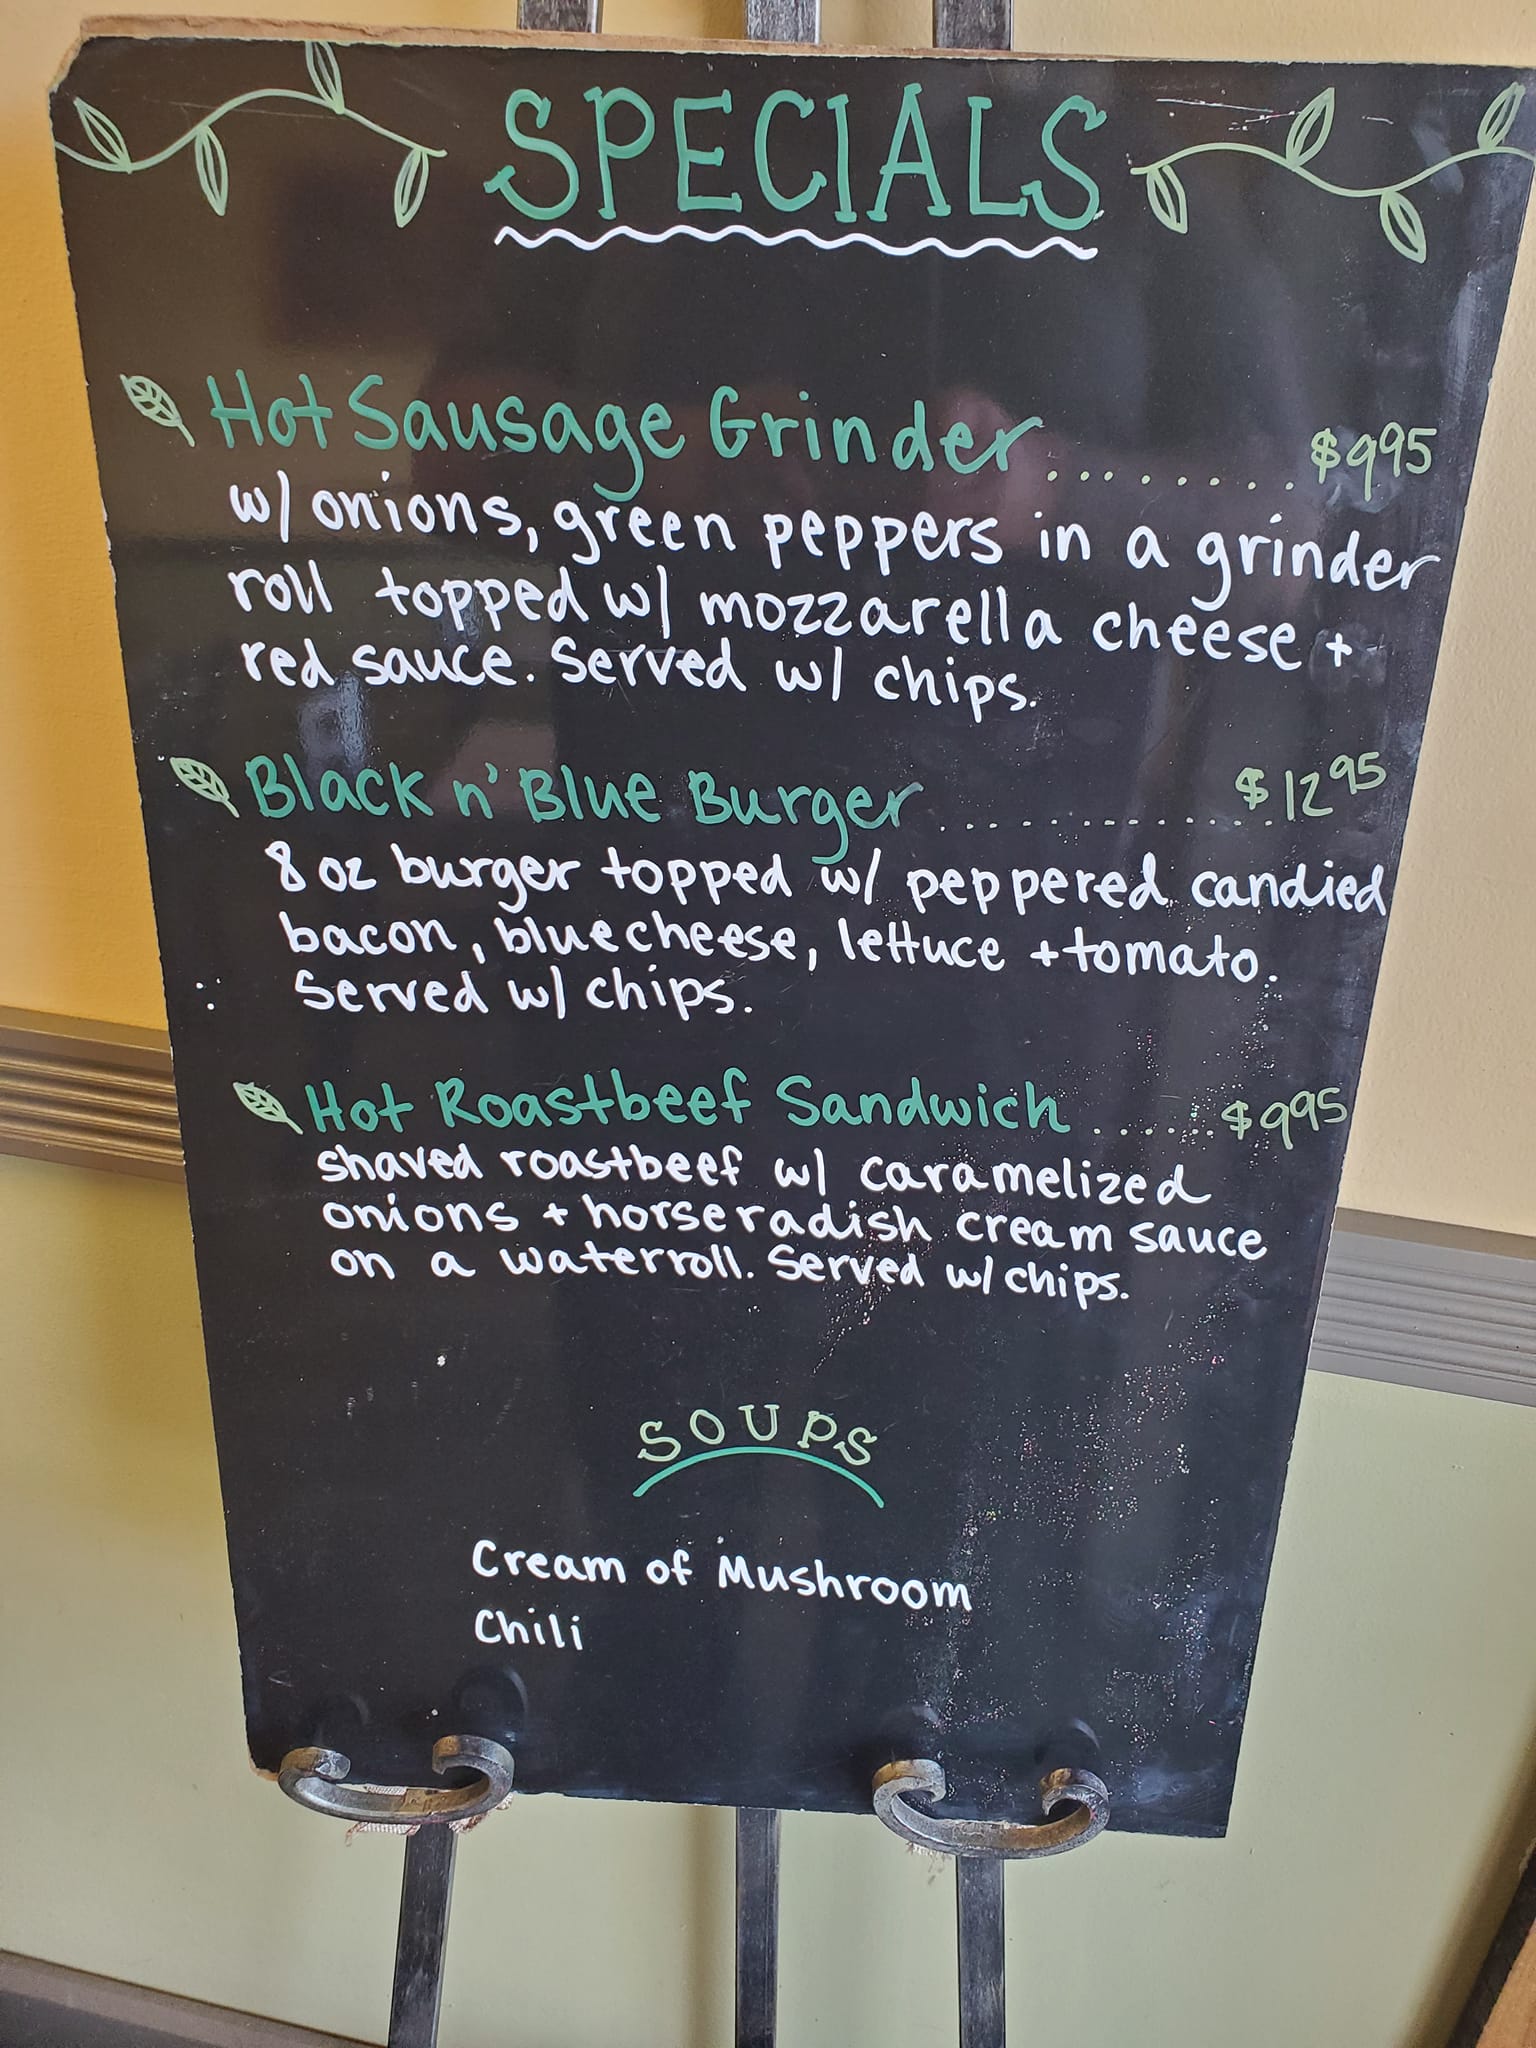 SPECIALS
Hot Sausage Grinder ......... $995
w/ onions, green peppers in a grinder
roll topped w/ mozzarella cheese +
red sauce. Served w/ chips.
Black n' Blue Burger .............. $1295
8 oz burger topped w/ peppered candied
bacon, bluecheese, lettuce + tomato.
Served w/ chips.
Hot Roastbeef Sandwich ...... $995
shaved roastbeef w/ caramelized
onions + horseradish cream sauce
on a waterroll. Served w/ chips.
SOUPS
Cream of Mushroom
Chili